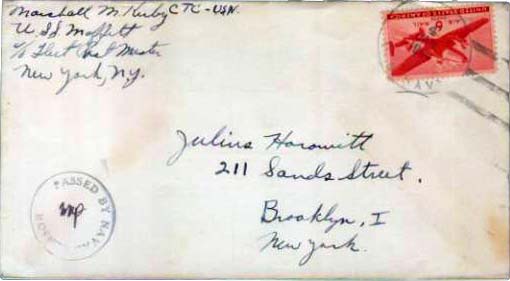 Marshall M. Kirby CTC - USN.
U S S Moffett
c/o Fleet Post Master
New York, N.Y.
UNITED STATES OF AMERICA
AIR MAIL
6¢
NAVY
Julius Horowitt
211 Sands Street.
Brooklyn, 1
New York.
PASSED BY NAV